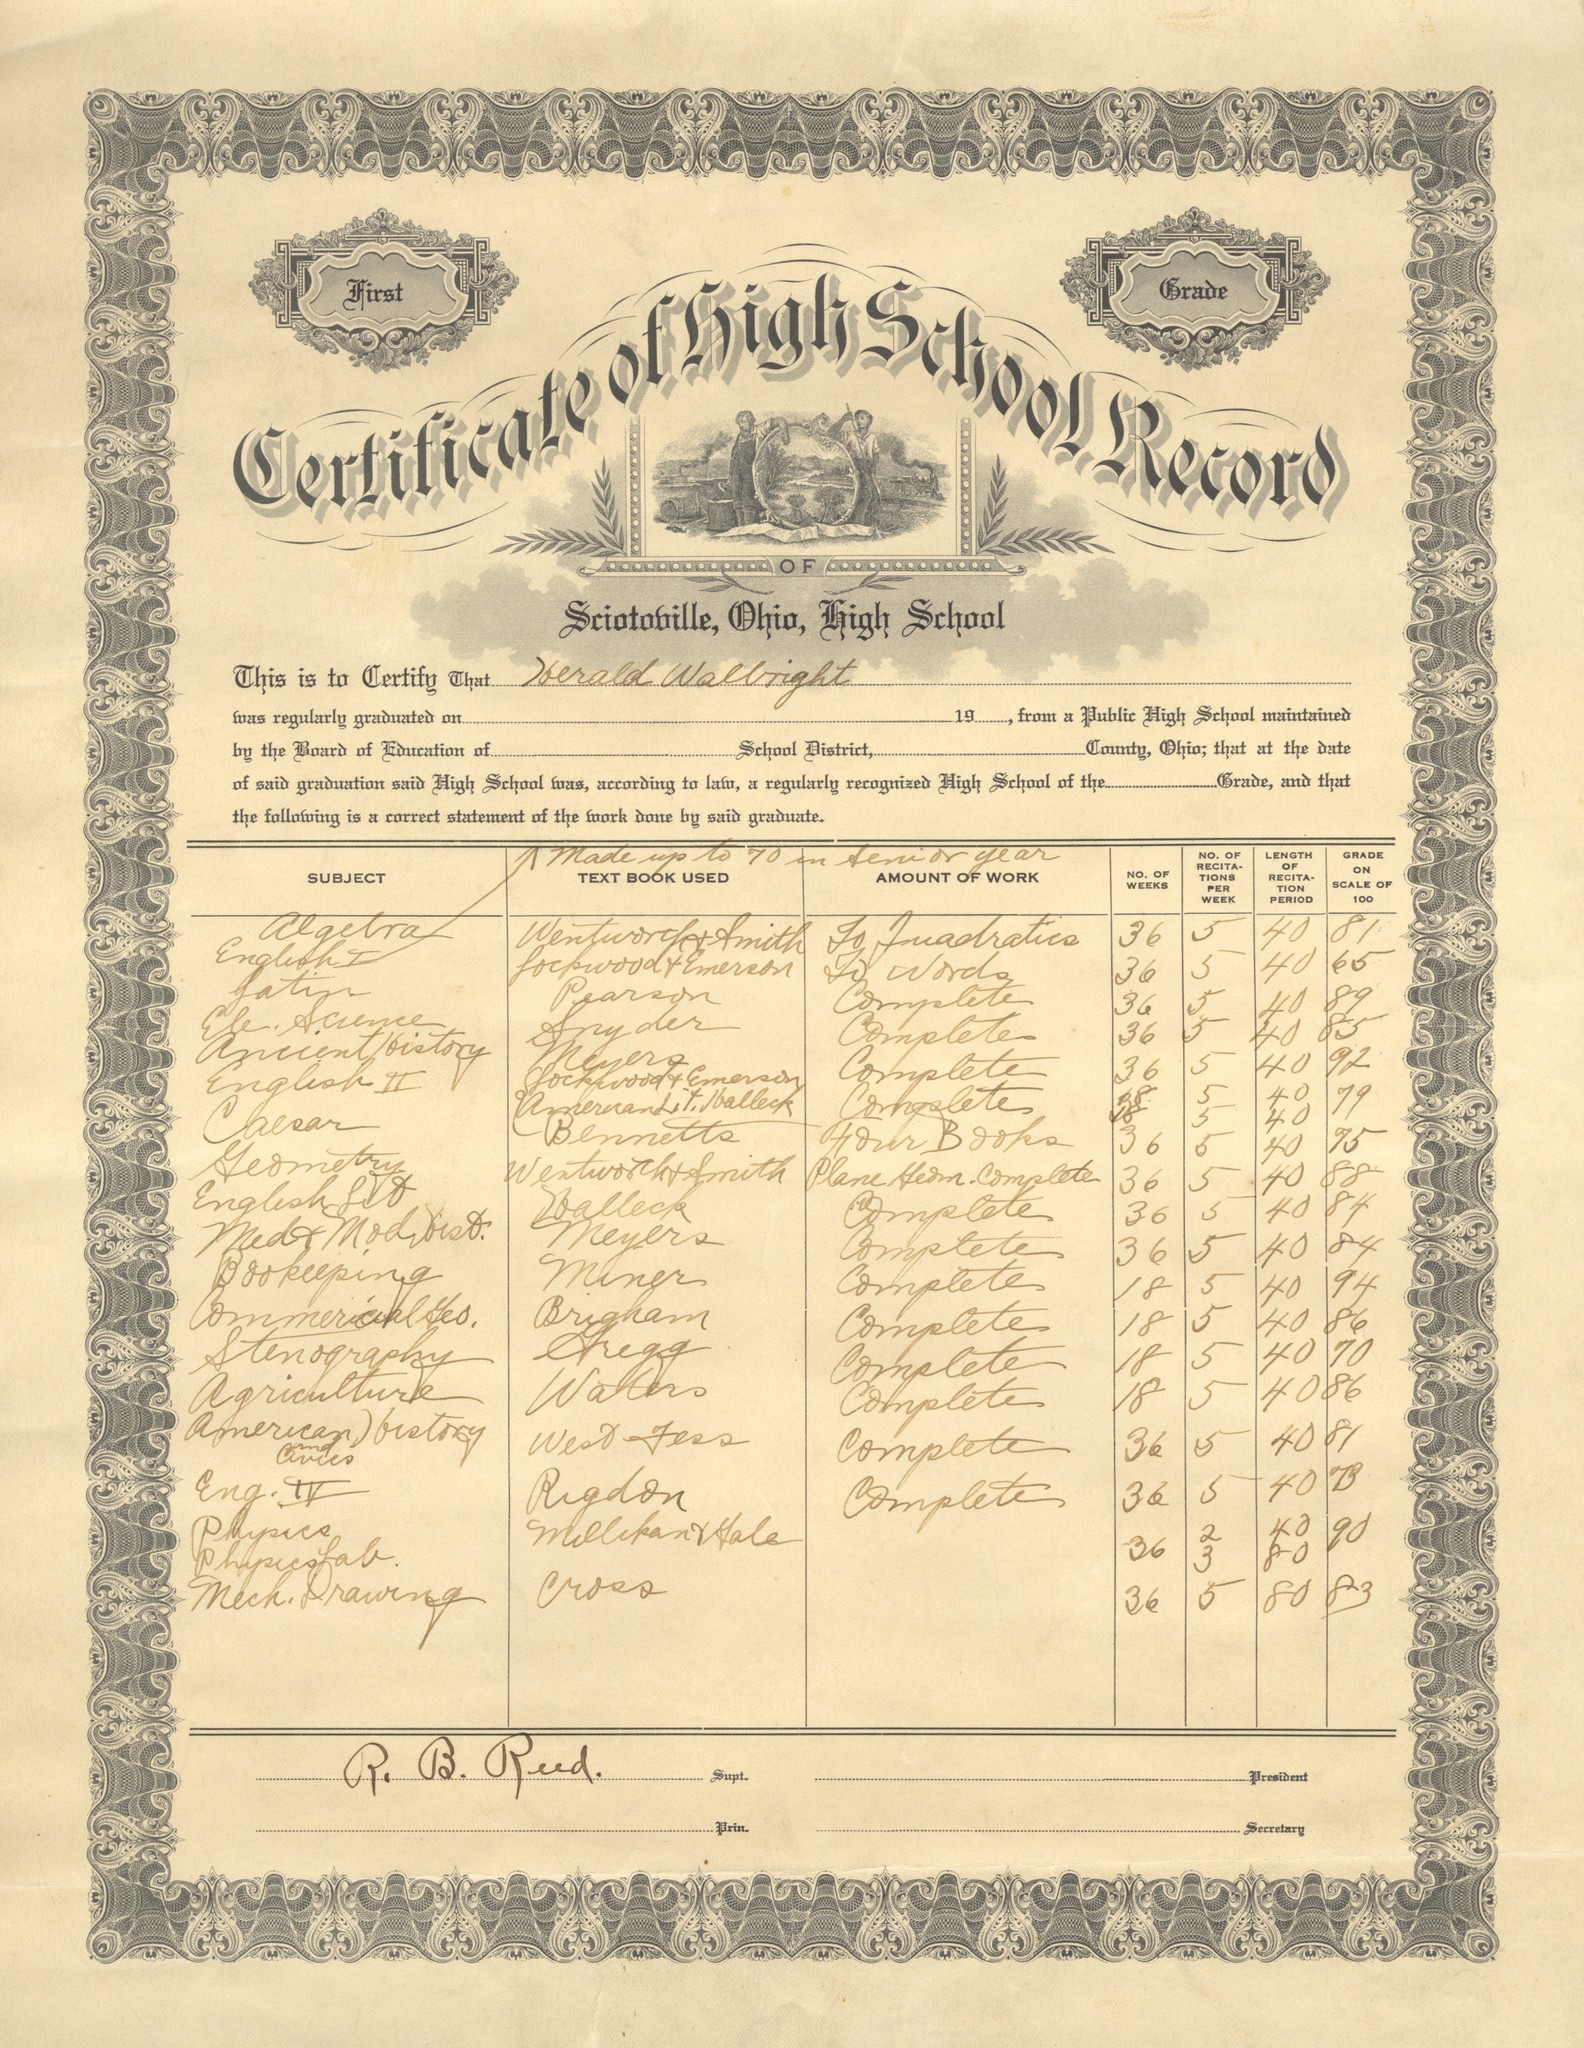 First
Grade
Certificate of High School Record
OF
Sciotoville, Ohio, High School
This is to Certify That Herald Walbright
was regularly graduated on 19, from a Public High School maintained
by the Board of Education of School District, County, Ohio; that at the date
of said graduation said High School was, according to law, a regularly recognized High School of the Grade, and that
the following is a correct statement of the work done by said graduate.
Made up to 70 in senior year
SUBJECT TEXT BOOK USED AMOUNT OF WORK NO. OF WEEKS NO. OF RECITATIONS PER WEEK LENGTH OF RECITATION PERIOD GRADE ON SCALE OF 100
Algebra Wentworth & Smith To Quadratics 36 5 40 81
English I Lockwood & Emerson To Words 36 5 40 65
Latin Pearson Complete 36 5 40 89
Ele. Science Snyder Complete 36 5 40 85
Ancient History Meyers Complete 36 5 40 92
English II Lockwood & Emerson Complete 18 5 40 79
American Lit. Halleck 18 5 40
Caesar Bennetts Four Books 36 5 40 75
Geometry Wentworth & Smith Plane Geom. Complete 36 5 40 88
English Lit Halleck Complete 36 5 40 84
Med & Mod. Hist. Meyers Complete 36 5 40 84
Bookeeping Miner Complete 18 5 40 94
Commericial Geo. Brigham Complete 18 5 40 86
Stenography Gregg Complete 18 5 40 70
Agriculture Waters Complete 18 5 40 86
American History West Fess Complete 36 5 40 81
and
Civics
Eng. IV Rigdon Complete 36 5 40 73
Physics Millikan & Gale 36 2 40 90
Physics Lab. 3 80
Mech. Drawing Cross 36 5 80 83
R. B. Reed. Supt. President
Prin. Secretary